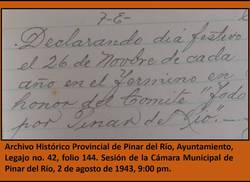 7-E-
Declarando día festivo
el 26 de Novbre de cada
año en el Termino en
honor del Comite "Todo
por Pinar del Río".
Archivo Histórico Provincial de Pinar del Río, Ayuntamiento,
Legajo no. 42, folio 144. Sesión de la Cámara Municipal de
Pinar del Río, 2 de agosto de 1943, 9:00 pm.